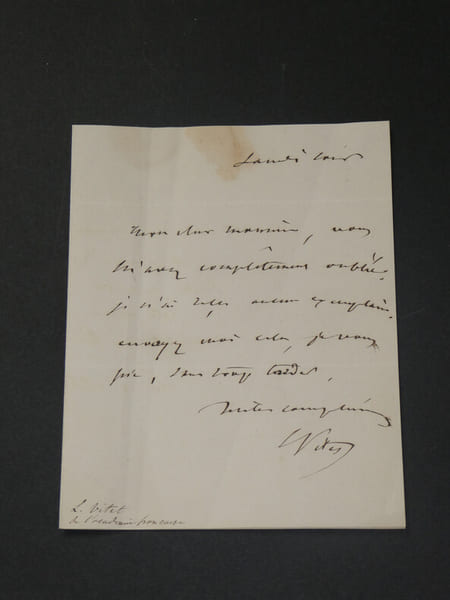 Samedi soir
Mon cher monsieur, vous
m'avez complètement oublié.
je n'ai reçu aucun exemplaire.
envoyez moi cela, je vous
prie, sans trop tarder.
mille
Vitet
L. Vitet
de l'académie française